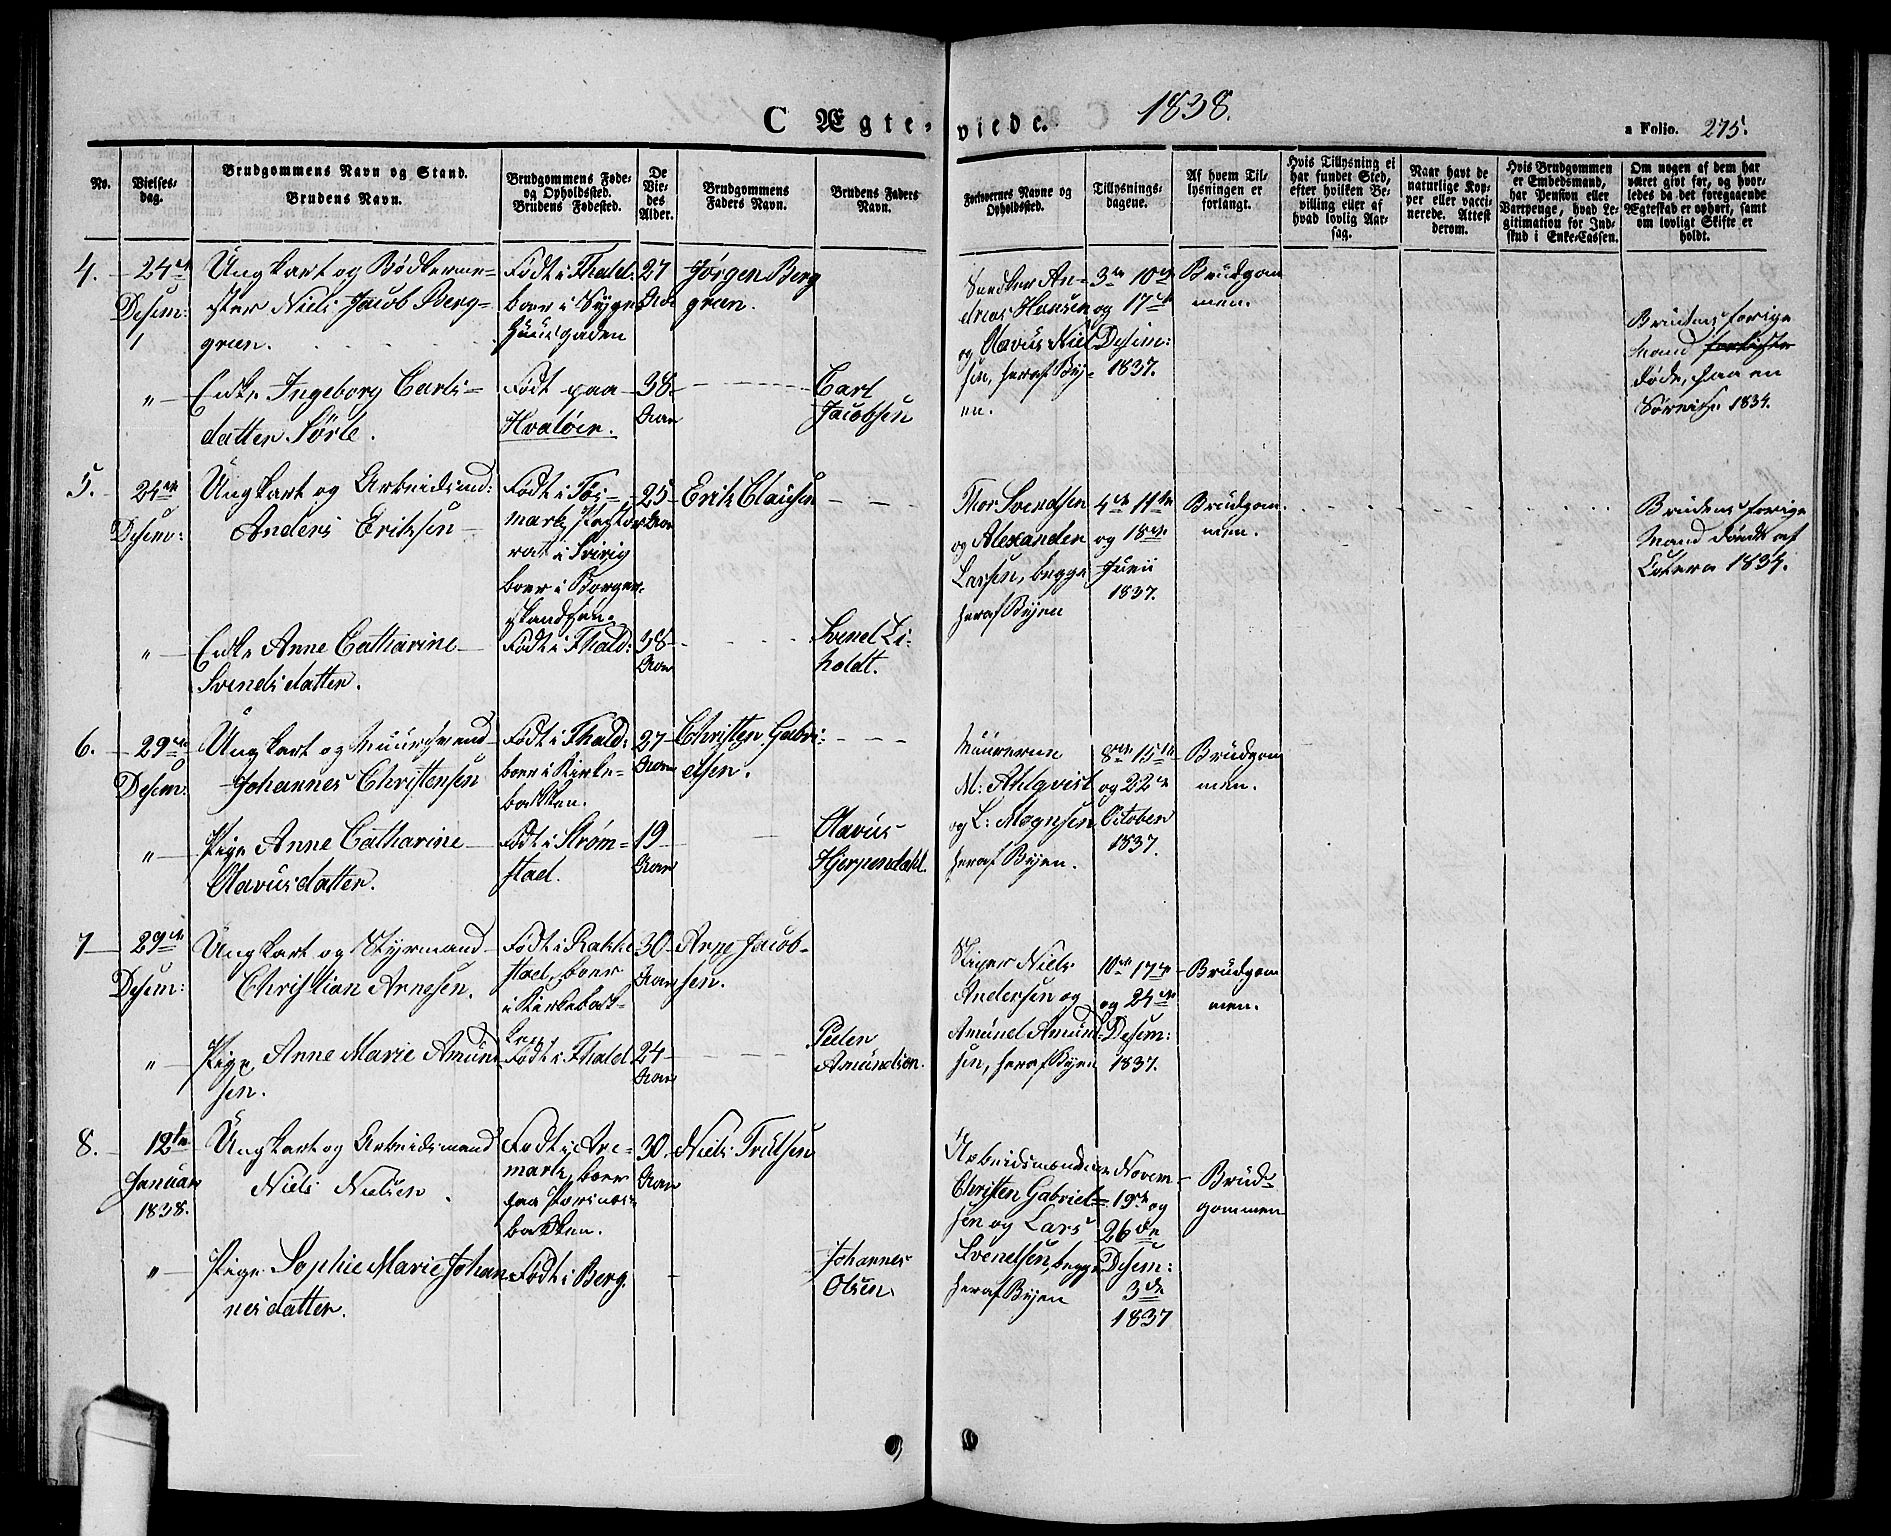 C Ægteviede. 1838.
a Folio. 275.
No.
Vielses-
dag.
Brudgommens Navn og Stand.
Brudens Navn.
Brudgommens Føde-
og Opholdssted.
Brudens Fødested.
De
Vie-
des
Alder.
Brudgommens
Faders Navn.
Brudens Faders
Navn.
Forlovernes Navne og
Opholdssted.
Tillysnings-
dagene.
Af hvem Til-
lysningen er
forlangt.
Hvis Tillysning ei
har fundet Sted,
efter hvilken Be-
villing eller af
hvad lovlig Aar-
sag.
Naar havt de
naturlige Kop-
per eller vacci-
nerede. Attest
derom.
Hvis Brudgommen
er Embedsmand,
har Pension eller
Vartpenge, hvad Le-
gitimation for Ind-
skud i Enke-Cassen.
Om nogen af dem har
været givt før, og hvor-
ledes da det foregaaende
Ægteskab er ophørt, samt
om lovligt Skifte er
holdt.
4.
24de
Desem:
Ungkarl og Bødkerme-
ster Niels Jacob Berg-
green.
Født i Fhald:
boer i Syge
Huusgaden
27
Jørgen Berg
green.
Snedker An-
dreas Hansen
og Olavus Niel
sen, heraf By-
en.
3de 10de
og 17de
Desem:
1837.
Brudgom
men.
Brudens forige
Mand
døde, paa en
1834.
" Enke Ingeborg Carls-
datter Sörle.
Født paa
Hvaløer.
38
Aar
Carl
Jacobsen
5.
24de
Desem:
Ungkarl og Arbeidsmd:
Anders Eriksen
Født i
i Sverig
boer i Borger-
25
Aar
Erik Clausen
Thor Svendsen
og Alexander
Larsen, begge
heraf Byen
4de 11te
og 18de
Juni
1837.
Brudgom
men.
Brudens forige
Mand døde af
Colera 1834.
" Enke Anne Catharine
Svendsdatter.
Født i Fhald:
38
Aar
Svend Li-
holdt.
6.
29de
Desem:
Ungkarl og Muursvend
Johannes Christensen
Født i Fhald:
boer i Kirke-
bakken.
27
Aar
Christen Gabri-
elsen.
Muurerne
M: Ahlqvist
og L: Magnsen
heraf Byen.
8de 15de
og 22de
October
1837.
Brudgom
men.
" Pige Anne Catharine
Olavusdatter.
Født i Strøm-
stad.
19
Aar
Olavus
Hjerpendahl.
7
29de
Desem:
Ungkarl og Styrmand
Christian Arnesen.
Født i Rakke
stad, boer
i Kirkebak-
ken
30
Aar
Arne Jacob-
sen.
Niels
Andersen og
Amund Amund-
sen, heraf Byen
10de 17de
og 24de
Desem:
1837.
Brudgom
men.
" Pige Anne Marie Amund
sen.
Født i Fhald
24
Aar
Peder
Amundsen.
8.
12te
Januar
1838.
Ungkarl og Arbeidsmand
Niels Nielsen.
Født i Are-
mark, boer
paa
bakken.
30
Aar
Niels
Arbeidsmændene
Christen Gabriel-
sen og Lars
Svendsen, begge
heraf Byen
Novem
19de og
26de
Desem:
3de
1837
Brud-
gommen
" Pige Sophie Marie Johan-
nesdatter.
Født i Berg.
Johannes
Olsen.